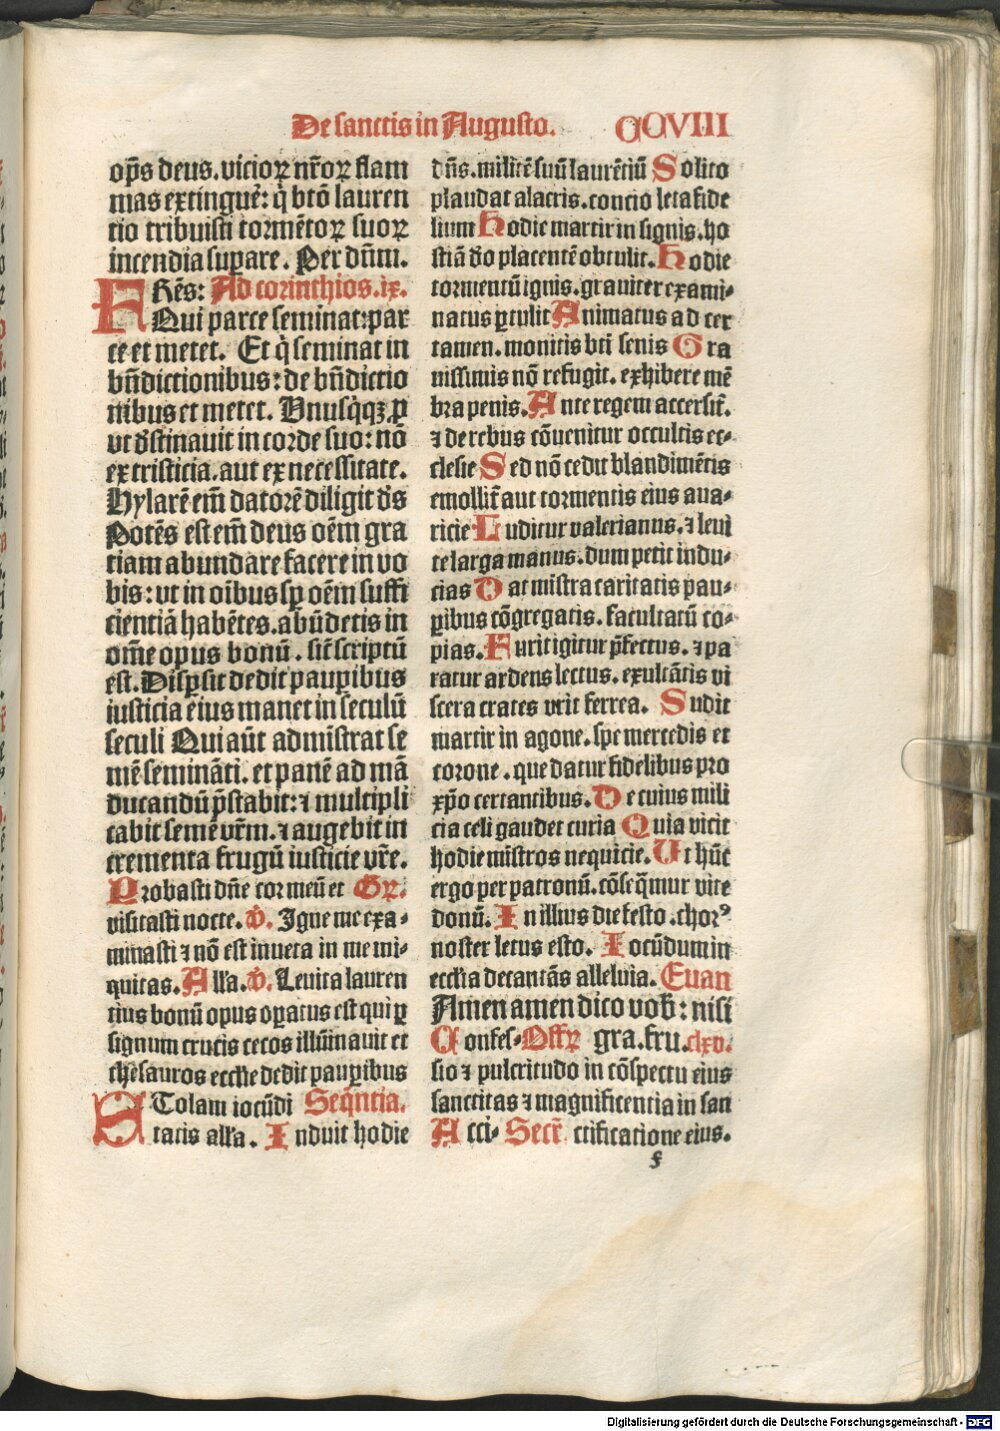 De sanctis in Augusto. CCVIII
op̄s deus. vicioꝝ nr̄oꝝ flam
mas extinguē: q̇ btō lauren
tio tribuisti tormētoꝝ suoꝝ
incendia suꝑare. Per dn̄m.
FRēs: Ad corinthios. ix.
Qui parce seminat: par
ce et metet. Et q̇ seminat in
bn̄dictionibus: de bn̄dictio
nibus et metet. Vnusq̇qꝫ ꝓ
vt d̄stinauit in corde suo: nō
ex tristicia. aut ex necessitate.
Hylarē em̄ datorē diligit d̄s
Potēs est em̄ deus oēm gra
tiam abundare facere in vo
bis: vt in oībus sꝑ oēm suffi
cientiā habētes. abūdetis in
om̄e opus bonū. sic̄ scriptū
est. Disꝑsit dedit pauꝑibus
iusticia eius manet in seculū
seculi Qui aūt admīstrat se
mē semināti. et panē ad mā
ducandū p̄stabit: ⁊ multipli
cabit semē vr̄m. ⁊ augebit in
crementa frugū iusticie vr̄e.
Probasti dn̄e cor meū et Gꝝ.
visitasti nocte. V̄. Igne me exa-
minasti ⁊ nō est inuēta in me ini-
quitas. Alľa. V̄. Leuita lauren
tius bonū opus oꝑatus est qui ꝑ
signum crucis cecos illūinauit et
thesauros eccľie dedit pauꝑibus
STolam iocūdi Seq̄ntia.
tatis alľa. Induit hodie
dn̄s. militē suū laurētiū Solito
plaudat alacris. concio leta fide
lium Hodie martir insignis. ho
stiā d̄o placentē obtulit. Hodie
tormentū ignis. grauiter exami-
natus ꝑtulit Animatus ad cer
tamen. monitis bt̄i senis Gra
uissimis nō refugit. exhibere mē
bra penis. Ante regem accersit̄.
⁊ de rebus cōuenitur occultis ec-
clesie Sed nō cedit blandimētis
emollit̄ aut tormentis eius aua-
ricie Luditur valerianus. ⁊ leui
te larga manus. dum petit indu-
cias Dat mīstra caritatis pau-
ꝑibus cōgregatis. facultatū co-
pias. Furit igitur p̄fectus. ⁊ pa
ratur ardens lectus. exultātis vi
scera crates vrit ferrea. Sudit
martir in agone. spe mercedis et
corone. que datur fidelibus pro
xp̄o certantibus. De cuius mili
cia celi gaudet curia Quia vicit
hodie mīstros nequicie. Vt hūc
ergo per patronū. cōseq̄mur vite
donū. In illius die festo. chorꝰ
noster letus esto. Iocūdum in
eccľia decantās alleluia. Euan
Amen amen dico vob̄: nisi
gra. fru. clxv.
Confes- Offꝝ
sio ⁊ pulcritudo in cōspectu eius
sanctitas ⁊ magnificentia in san
Acci- Secr̄ ctificatione eius.
f
Digitalisierung gefördert durch die Deutsche Forschungsgemeinschaft - DFG